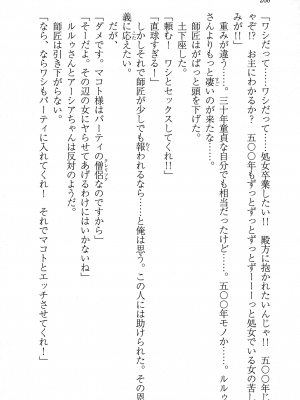 「ワシだって……ワシだって……処女卒業したい!! 殿方に抱かれたいんじゃ!! 五〇〇年じ
ゃぞ!? お主にわかるか? 五〇〇年もずっとずっとずっとずーーーっと処女でいる女の苦し
みが!!」
重みが違う……。三十年童貞な自分でも相当だったけど……。五〇〇年モノか……。ルルゥ
さんよりもっと凄いのが来たな……。
師匠はがばっと頭を下げた。
「頼むー! ワシとセックスしてくれ!!」
「直球すぎる!」
土下座した。
しかしそれで師匠が少しでも報われるなら……と俺は思う。この人には助けられた。その恩
義に応えたい。
だが、
「ダメです。マコト様はパーティの僧侶なのですから」
「そーだよ。その辺の女にヤらせてあげるわけにはいかないね」
ルルゥさんとアーシアちゃんは反対のようだ。
師匠は引き下がらない。
「なら、ならワシもパーティに入れてくれ! それでマコトとエッチさせてくれ!」